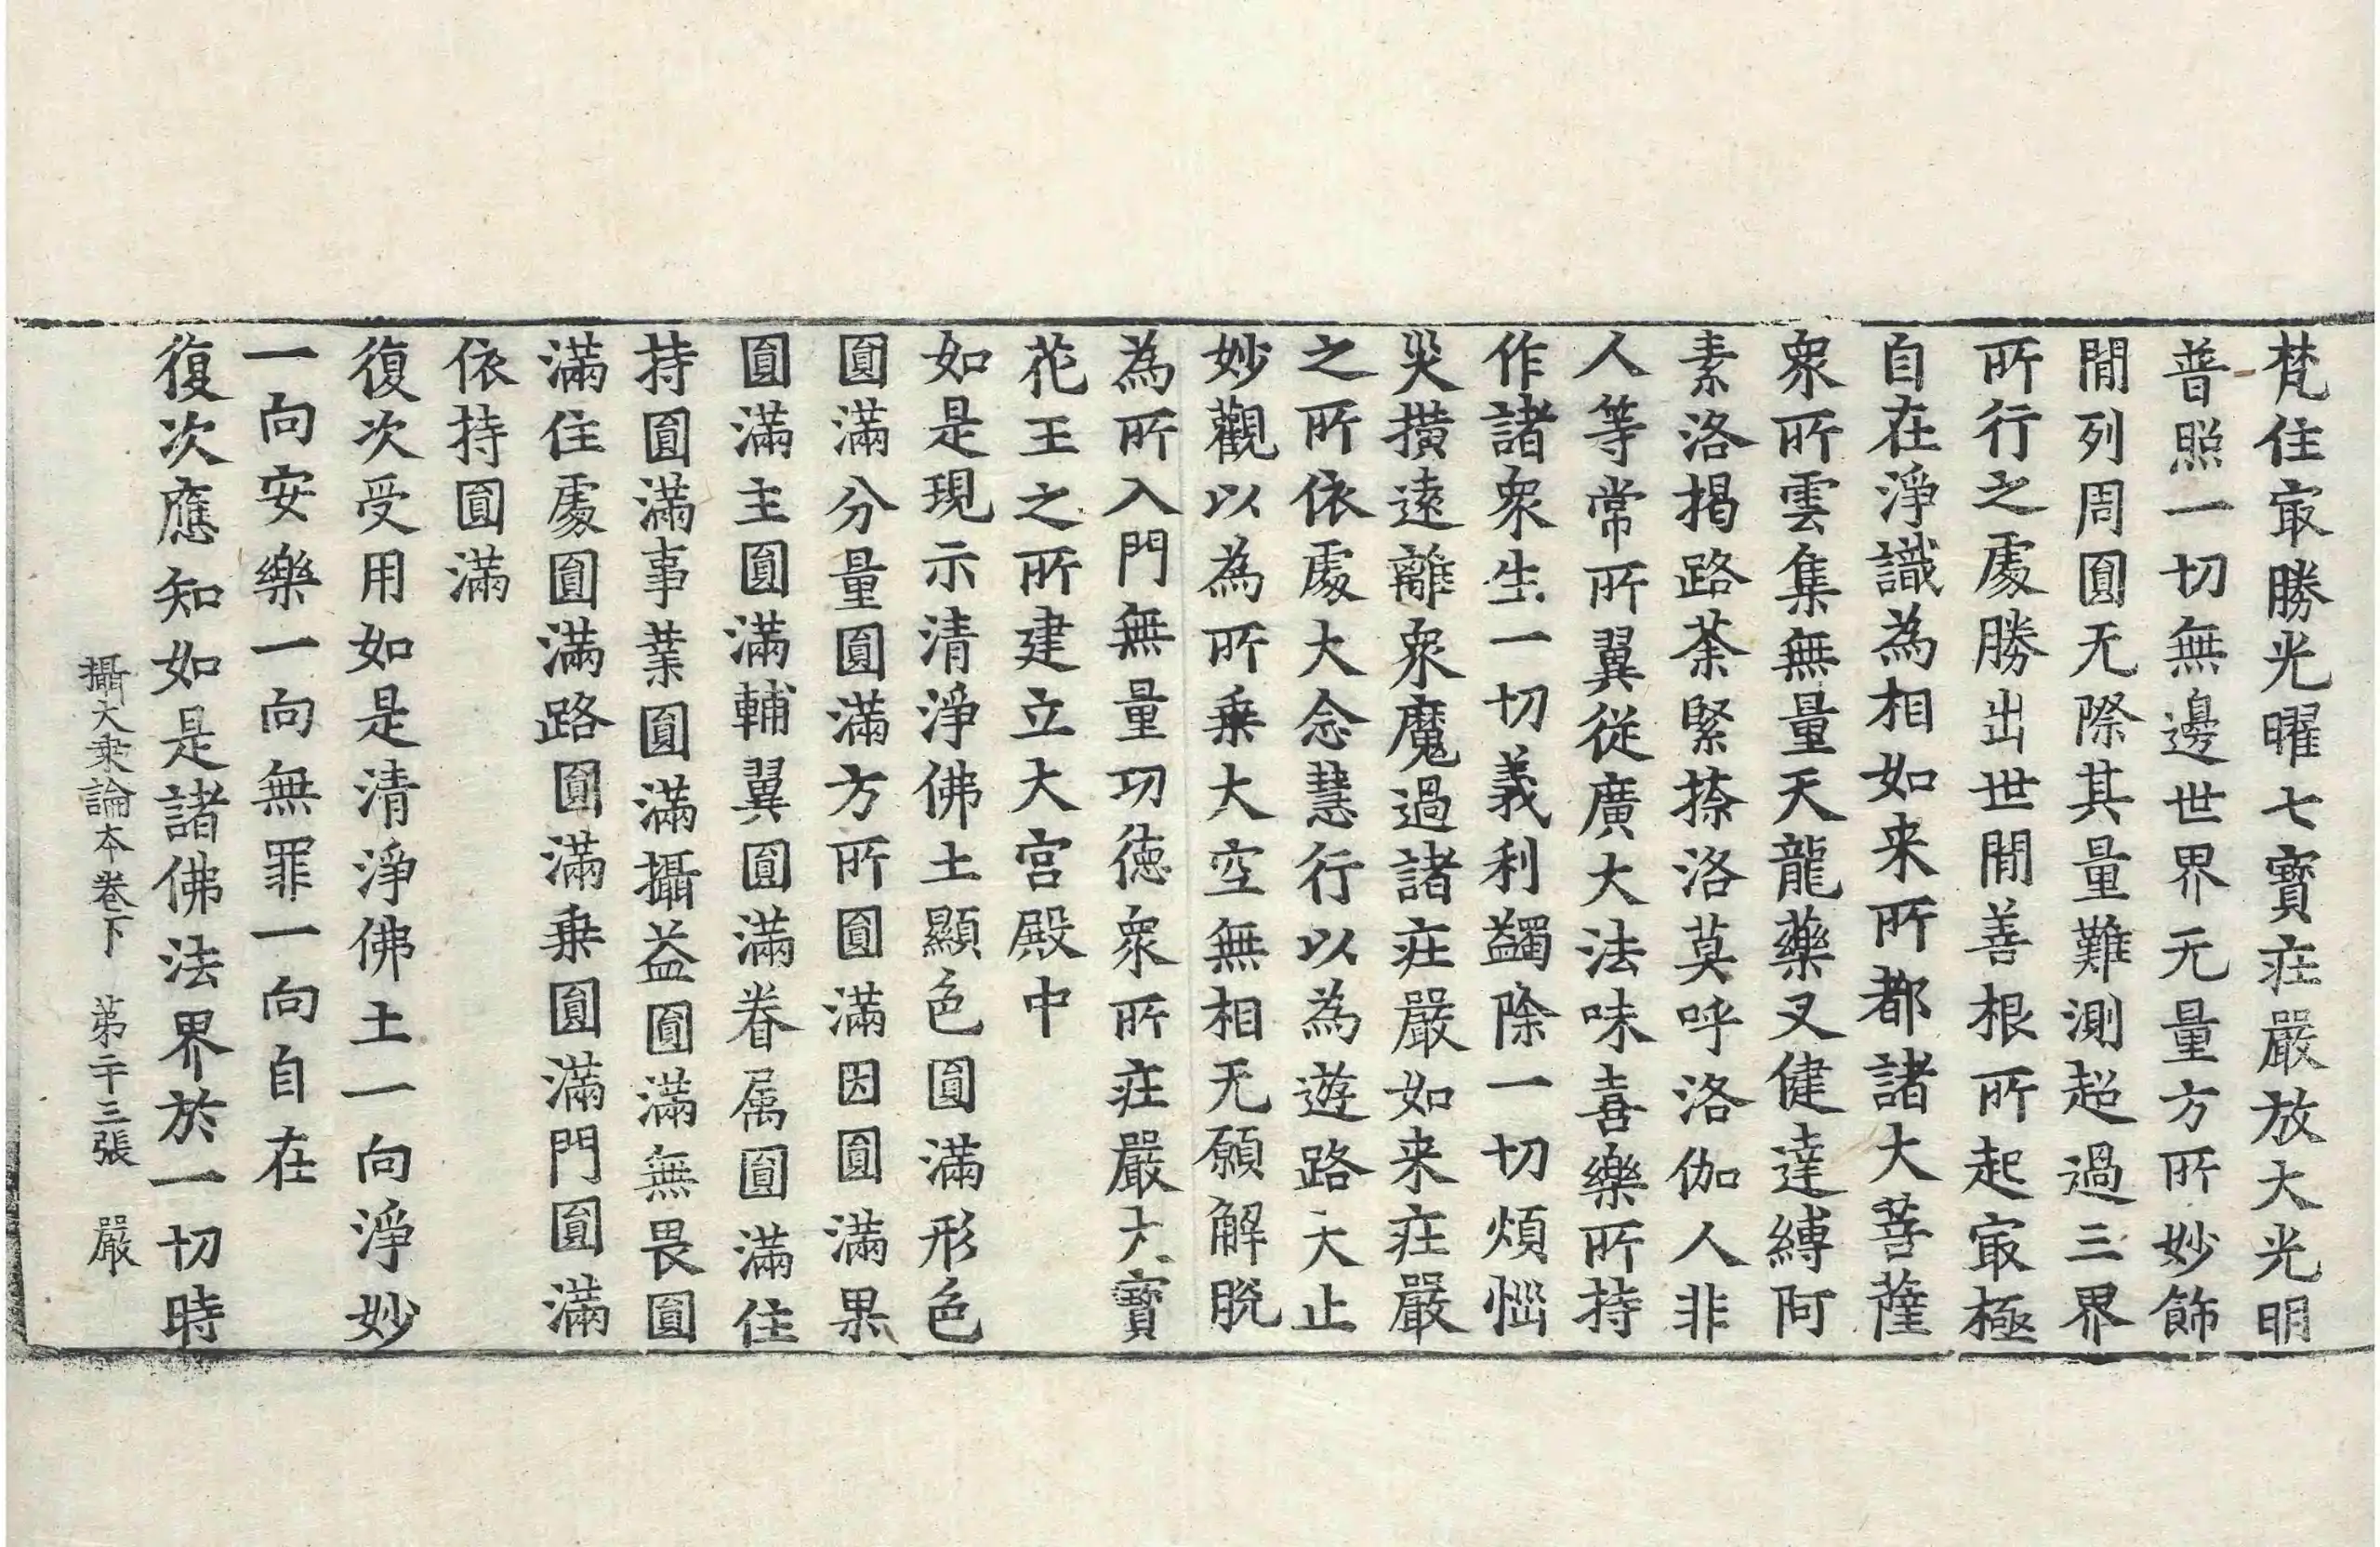 梵住㝡勝光曜七寶莊嚴放大光明
普照一切無邊世界无量方所妙飾
閒列周圓无際其量難測超過三界
所行之處勝出世閒善根所起㝡極
自在淨識為相如来所都諸大菩薩
衆所雲集無量天龍藥叉健達縛阿
素洛揭路荼緊捺洛莫呼洛伽人非
人等常所翼從廣大法味喜樂所持
作諸衆生一切義利蠲除一切煩惱
灾撗遠離衆魔過諸莊嚴如来莊嚴
之所依處大念慧行以為遊路大止
妙觀以為所乗大空無相无願解脫
為所入門無量功德衆所莊嚴大寶
花王之所建立大宮殿中
如是現示清淨佛土顯色圓滿形色
圓滿分量圓滿方所圓滿因圓滿果
圓滿主圓滿輔翼圓滿眷属圓滿住
持圓滿事業圓滿攝益圓滿無畏圓
滿住處圓滿路圓滿乗圓滿門圓滿
依持圓滿
復次受用如是清淨佛土一向淨妙
一向安樂一向無罪一向自在
復次應知如是諸佛法界於一切時
攝大乗論本卷下 第二十三張 嚴